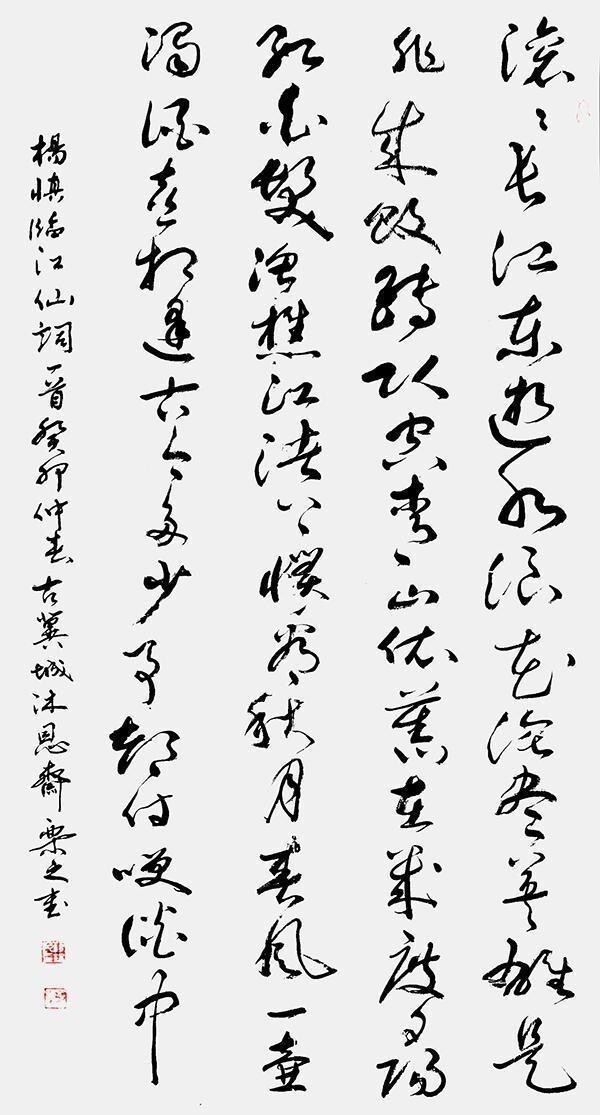 滚〻长江东逝水浪花淘尽英雄是
非成败转头空青山依旧在几度夕阳
红白发渔樵江渚上惯看秋月春风一壶
浊酒喜相逢古今多少事都付笑谈中
杨慎临江仙词一首癸卯仲春古冀城沐恩斋栗之书